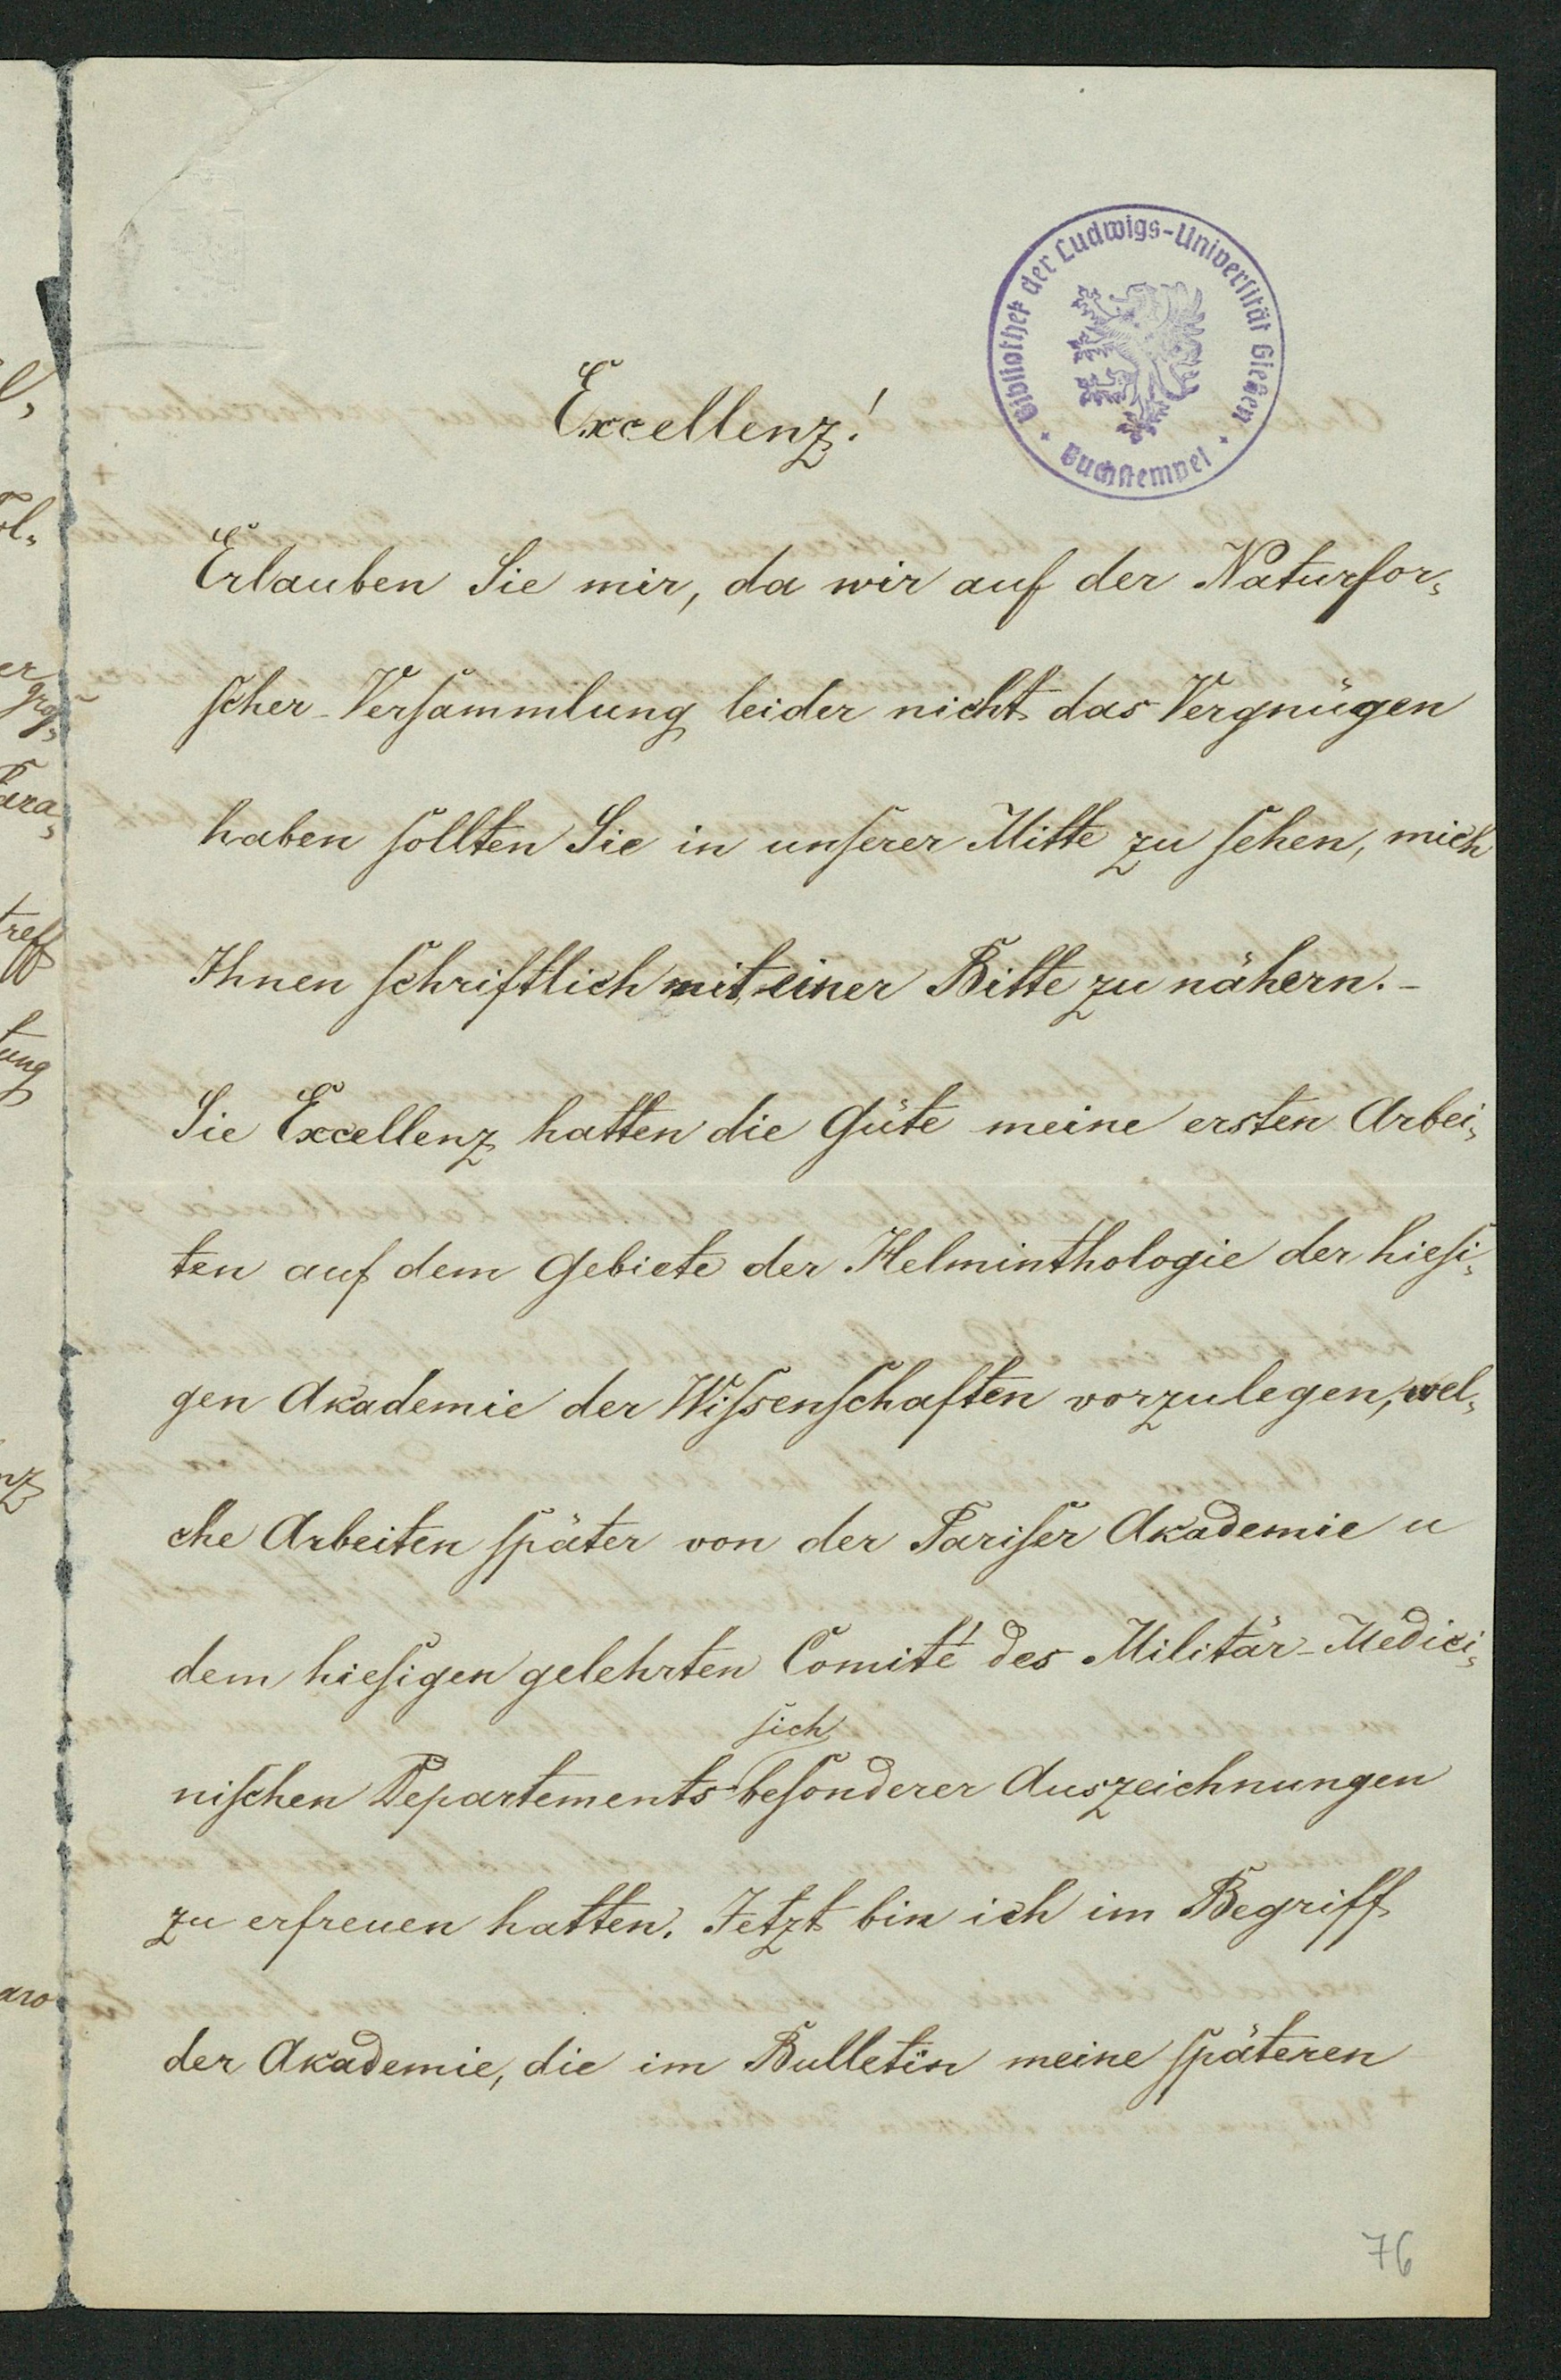 Bibliothek der Ludwigs-Universität Gießen
Buchstempel
Excellenz!
Erlauben Sie mir, da wir auf der Naturfor-
scher-Versammlung leider nicht das Vergnügen
haben sollten Sie in unserer Mitte zu sehen, mich
Ihnen schriftlich mit einer Bitte zu nähern. –
Sie Excellenz hatten die Güte meine ersten Arbei-
ten auf dem Gebiete der Helminthologie der hiesi-
gen Akademie der Wissenschaften vorzulegen, wel-
che Arbeiten später von der Pariser Akademie u
dem hiesigen gelehrten Comité des Militär-Medici-
sich
nischen Departements besonderer Auszeichnungen
zu erfreuen hatten. Jetzt bin ich im Begriff
der Akademie, die im Bulletin meine späteren
76